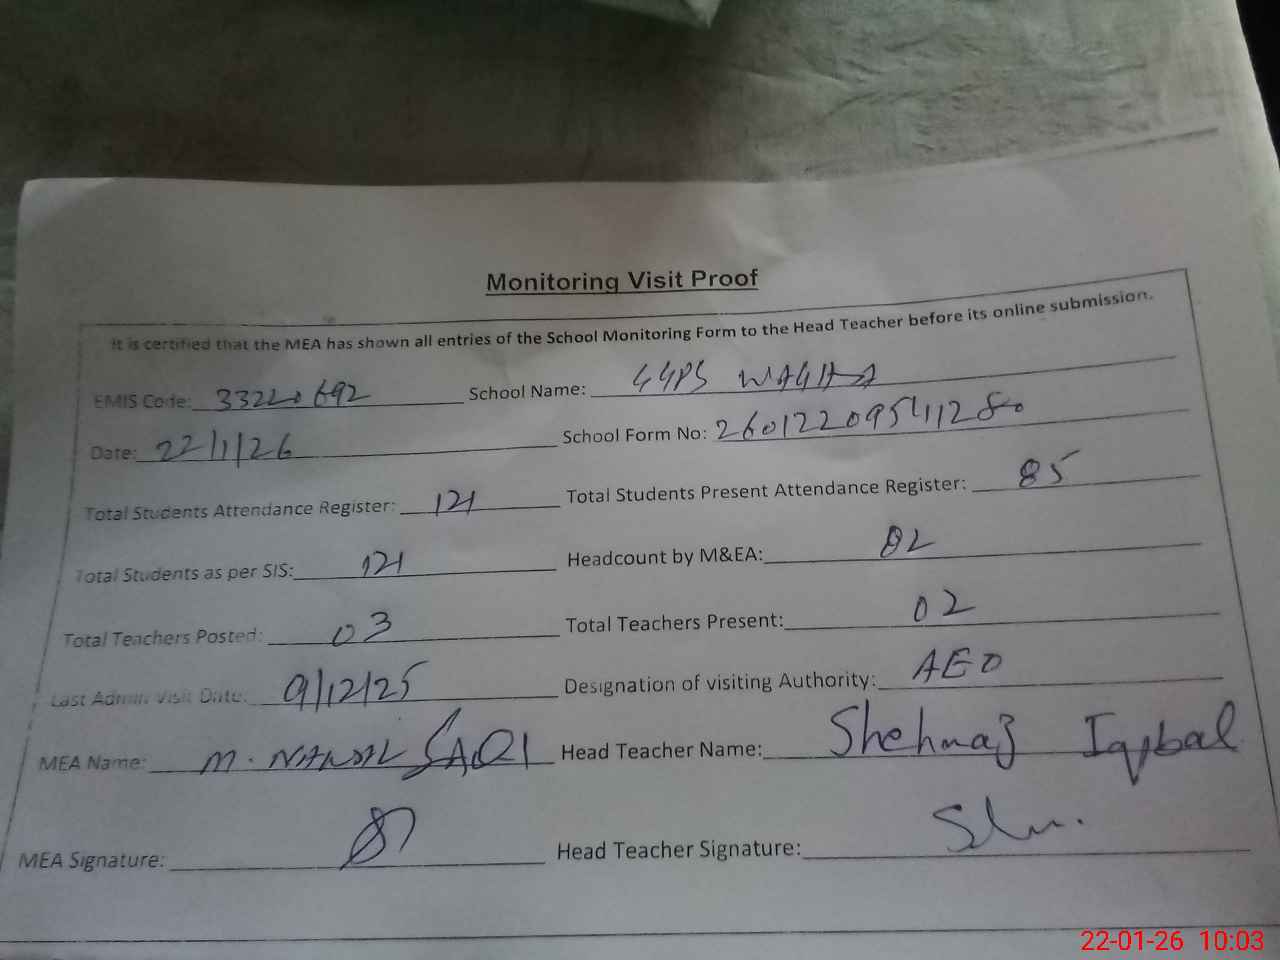 Monitoring Visit Proof
It is certified that the MEA has shown all entries of the School Monitoring Form to the Head Teacher before its online submission.
EMIS Code: 33220692 School Name: GGPS WAGHA
Date: 22/1/26 School Form No:
Total Students Attendance Register: 121 Total Students Present Attendance Register: 85
Total Students as per SIS: 121 Headcount by M&EA: 82
Total Teachers Posted: 03 Total Teachers Present: 02
Last Admin Visit Date: 9/12/25 Designation of visiting Authority: AEO
MEA Name: M. Head Teacher Name: Shehnaz Iqbal
MEA Signature: Head Teacher Signature:
22-01-26 10:03